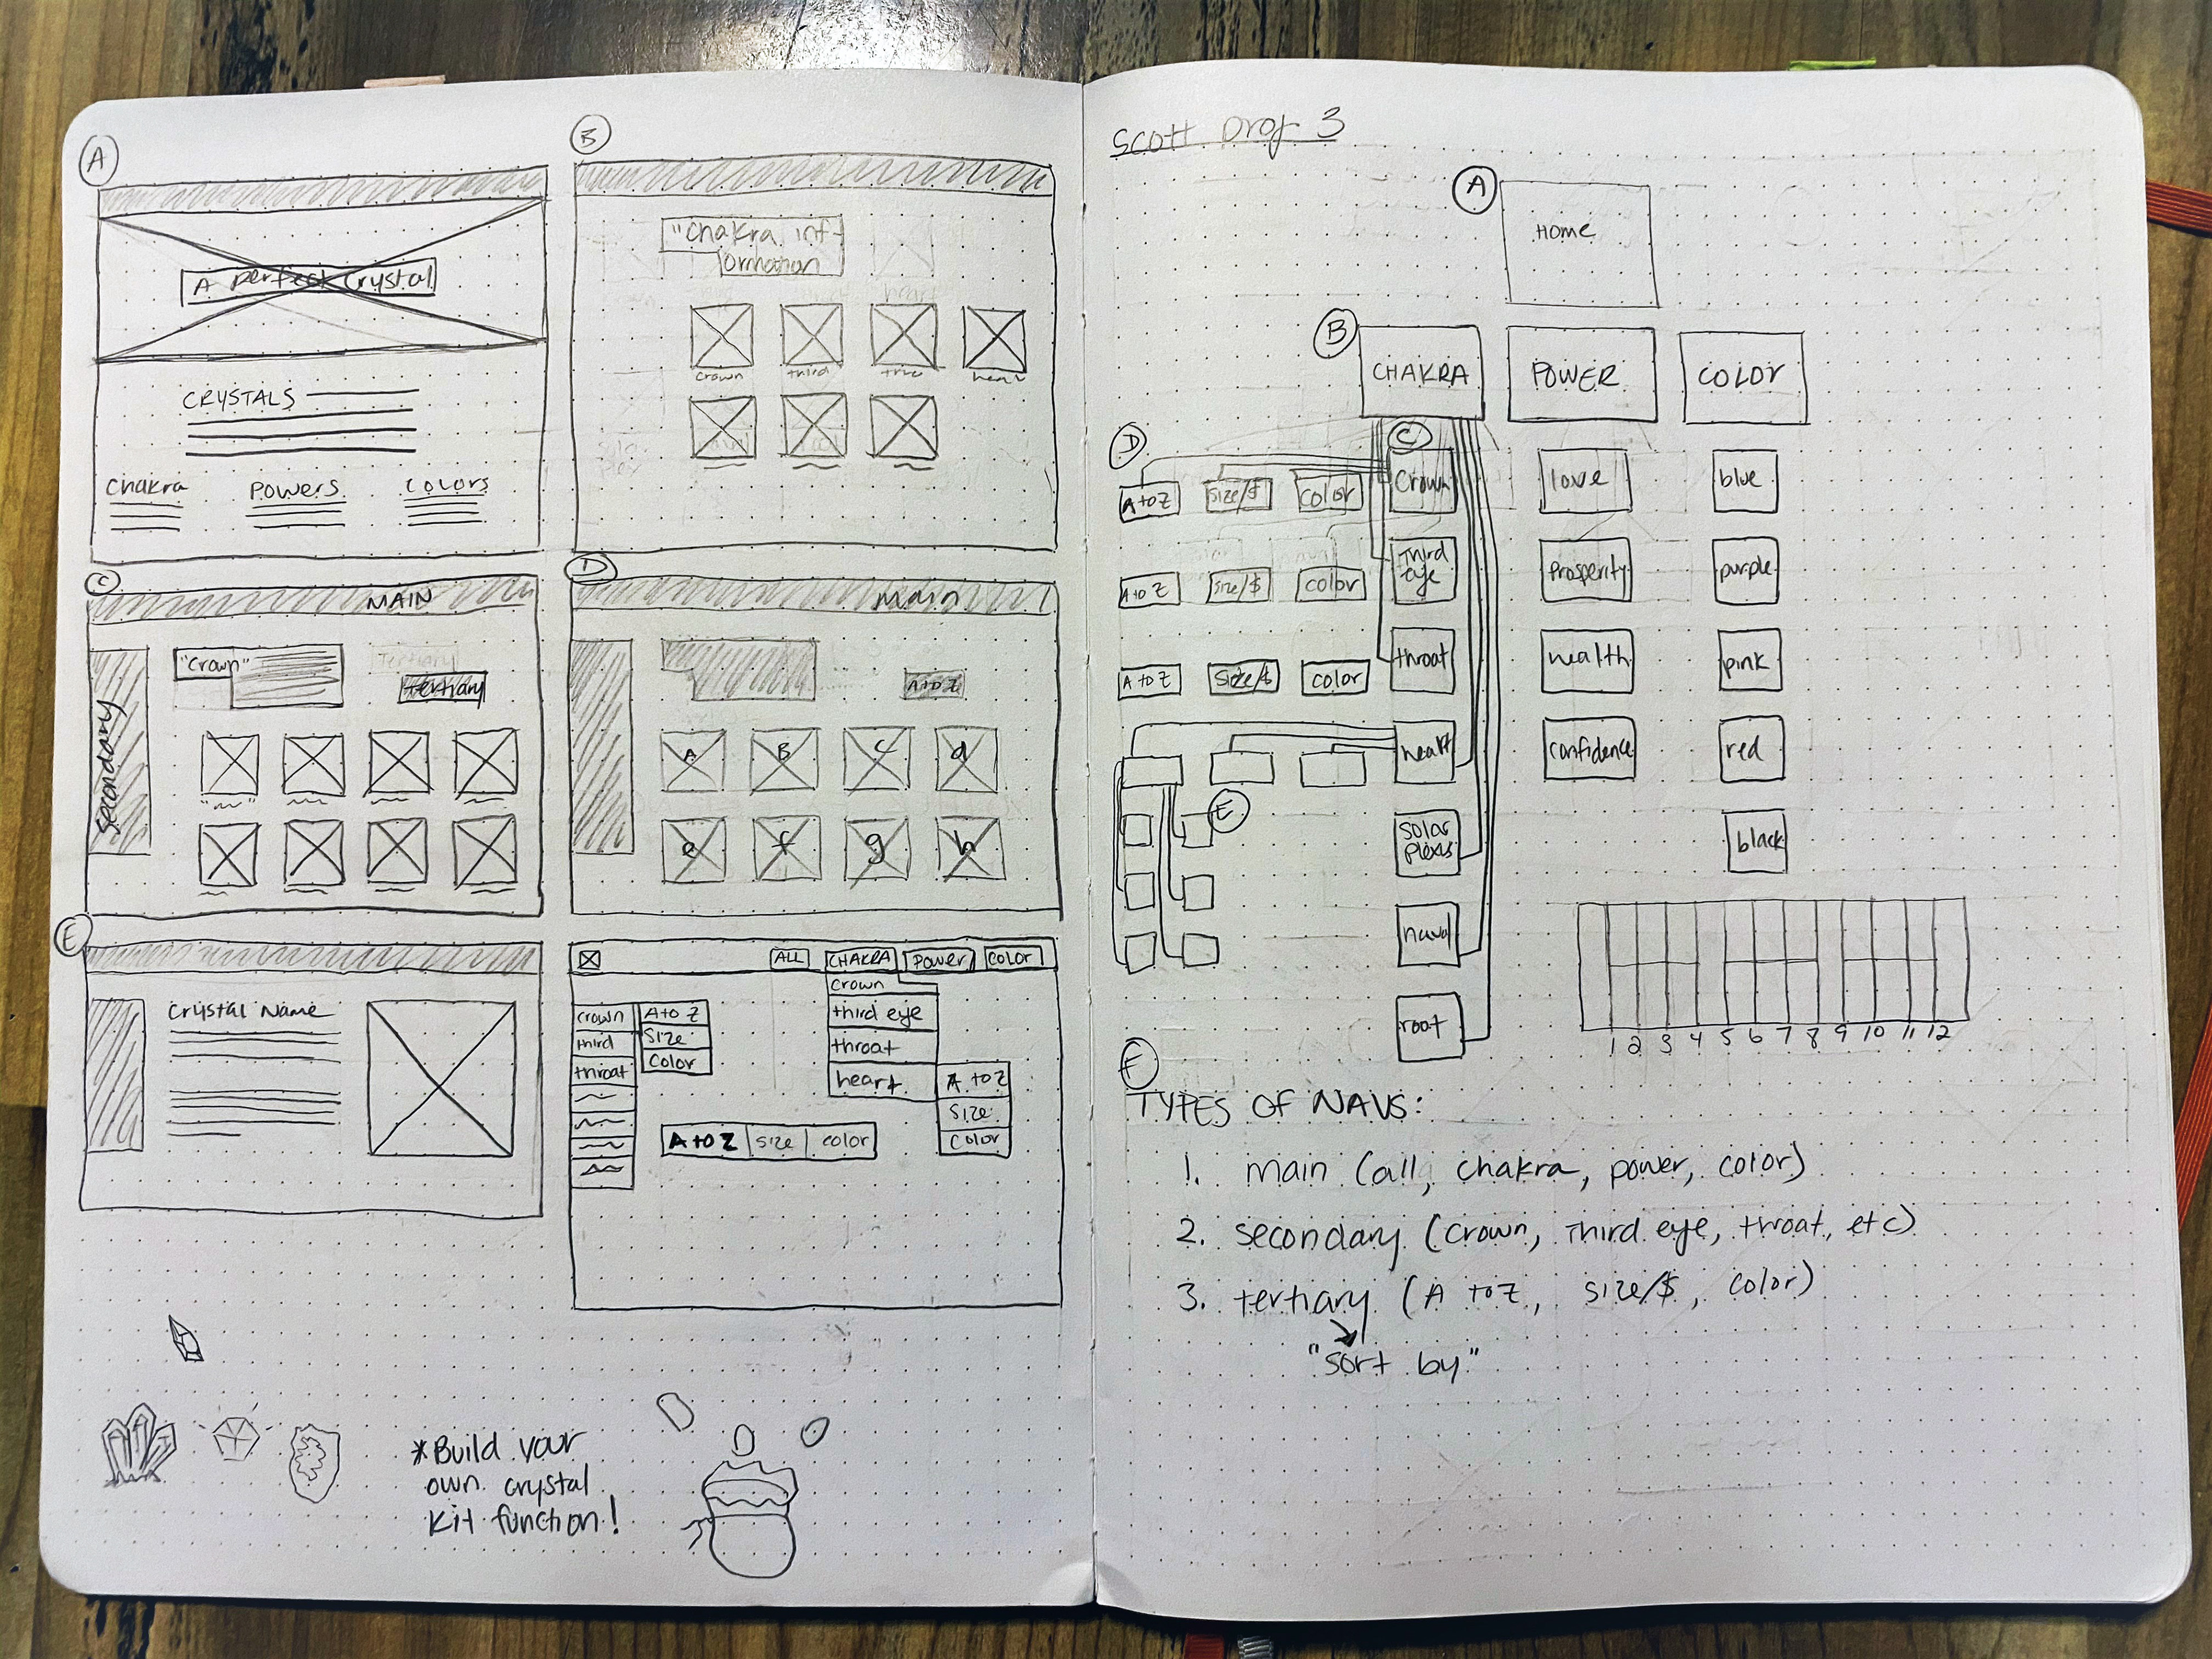 A
A perfect Crystal
CRYSTALS
Chakra
POWERS
COLORS
B
"Chakra inf-
ormation
crown
third
C
MAIN
Secondary
"Crown"
Tertiary
tertiary
D
Main
A to Z
A
B
C
d
e
f
g
h
E
Crystal Name
ALL
CHAKRA
Power
COLOR
crown
third eye
throat
heart
A to Z
Size
Color
crown
third
throat
A to Z
Size
Color
A to Z
size
color
*Build your
own crystal
Kit function!
Scott Proj 3
A
Home
B
CHAKRA
POWER
COLOR
D
C
A to Z
Size/$
color
Crown
love
blue
A to Z
Size/$
color
Third
eye
Prosperity
purple
A to Z
Size/$
color
throat
health
pink
heart
confidence
red
E
solar
plexus
black
naval
root
1 2 3 4 5 6 7 8 9 10 11 12
F
TYPES OF NAVS:
1. main (all, chakra, power, color)
2. secondary (crown, Third eye, throat, etc)
3. tertiary (A to Z, size/$, color)
"sort by"